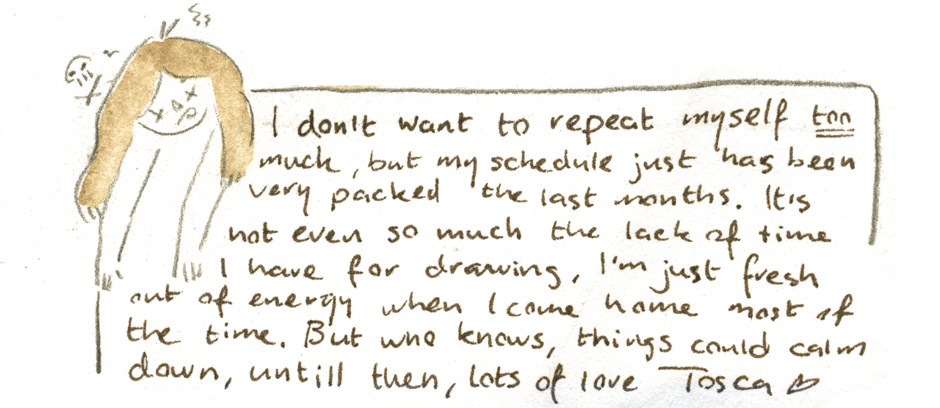 I don't want to repeat myself too
much, but my schedule just has been
very packed the last months. It's
not even so much the lack of time
I have for drawing, I'm just fresh
out of energy when I come home most of
the time. But who knows, things could calm
down, untill then, lots of love Tosca